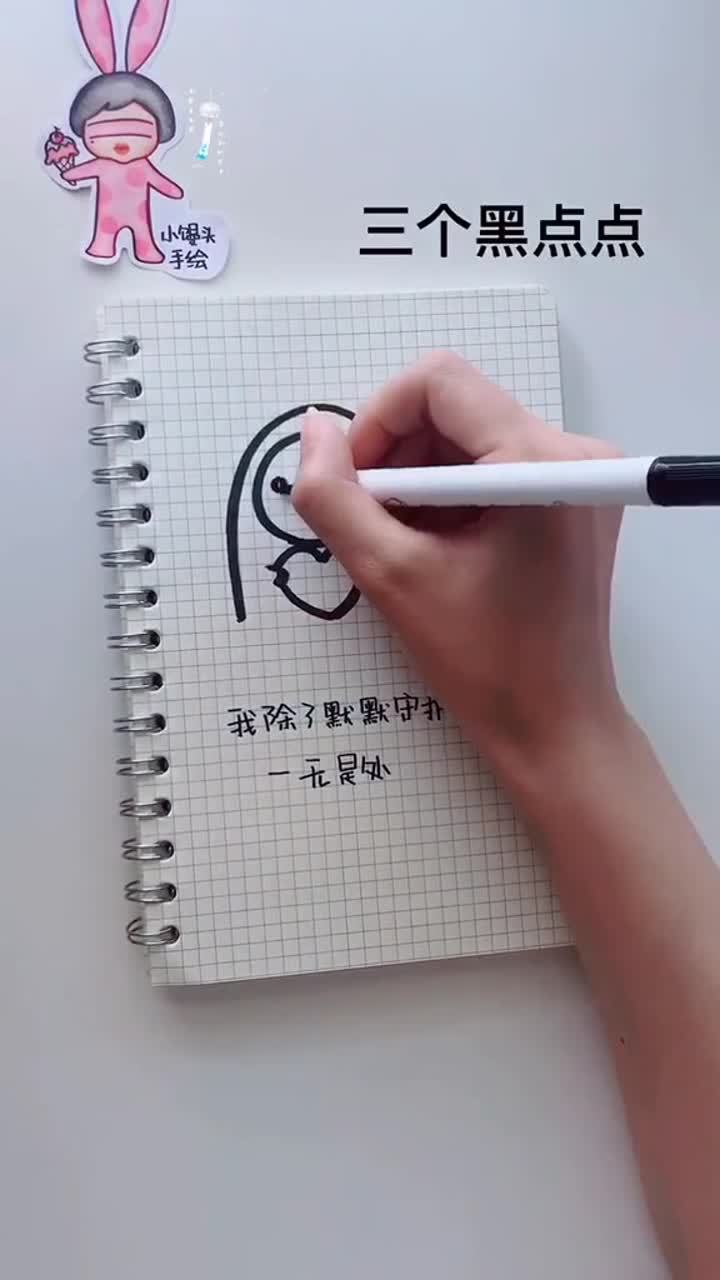 小馒头
手绘
三个黑点点
我除了默默守护
一无是处